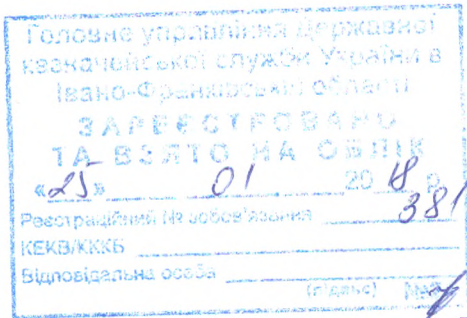 Головне управління Державної
казначейської служби України в
Івано-Франківській області
ЗАРЕЄСТРОВАНО
ТА ВЗЯТО НА ОБЛІК
«25» 01 2018 р.
Реєстраційний № зобов'язання 381
КЕКВ/ККБ
Відповідальна особа
(підпис)